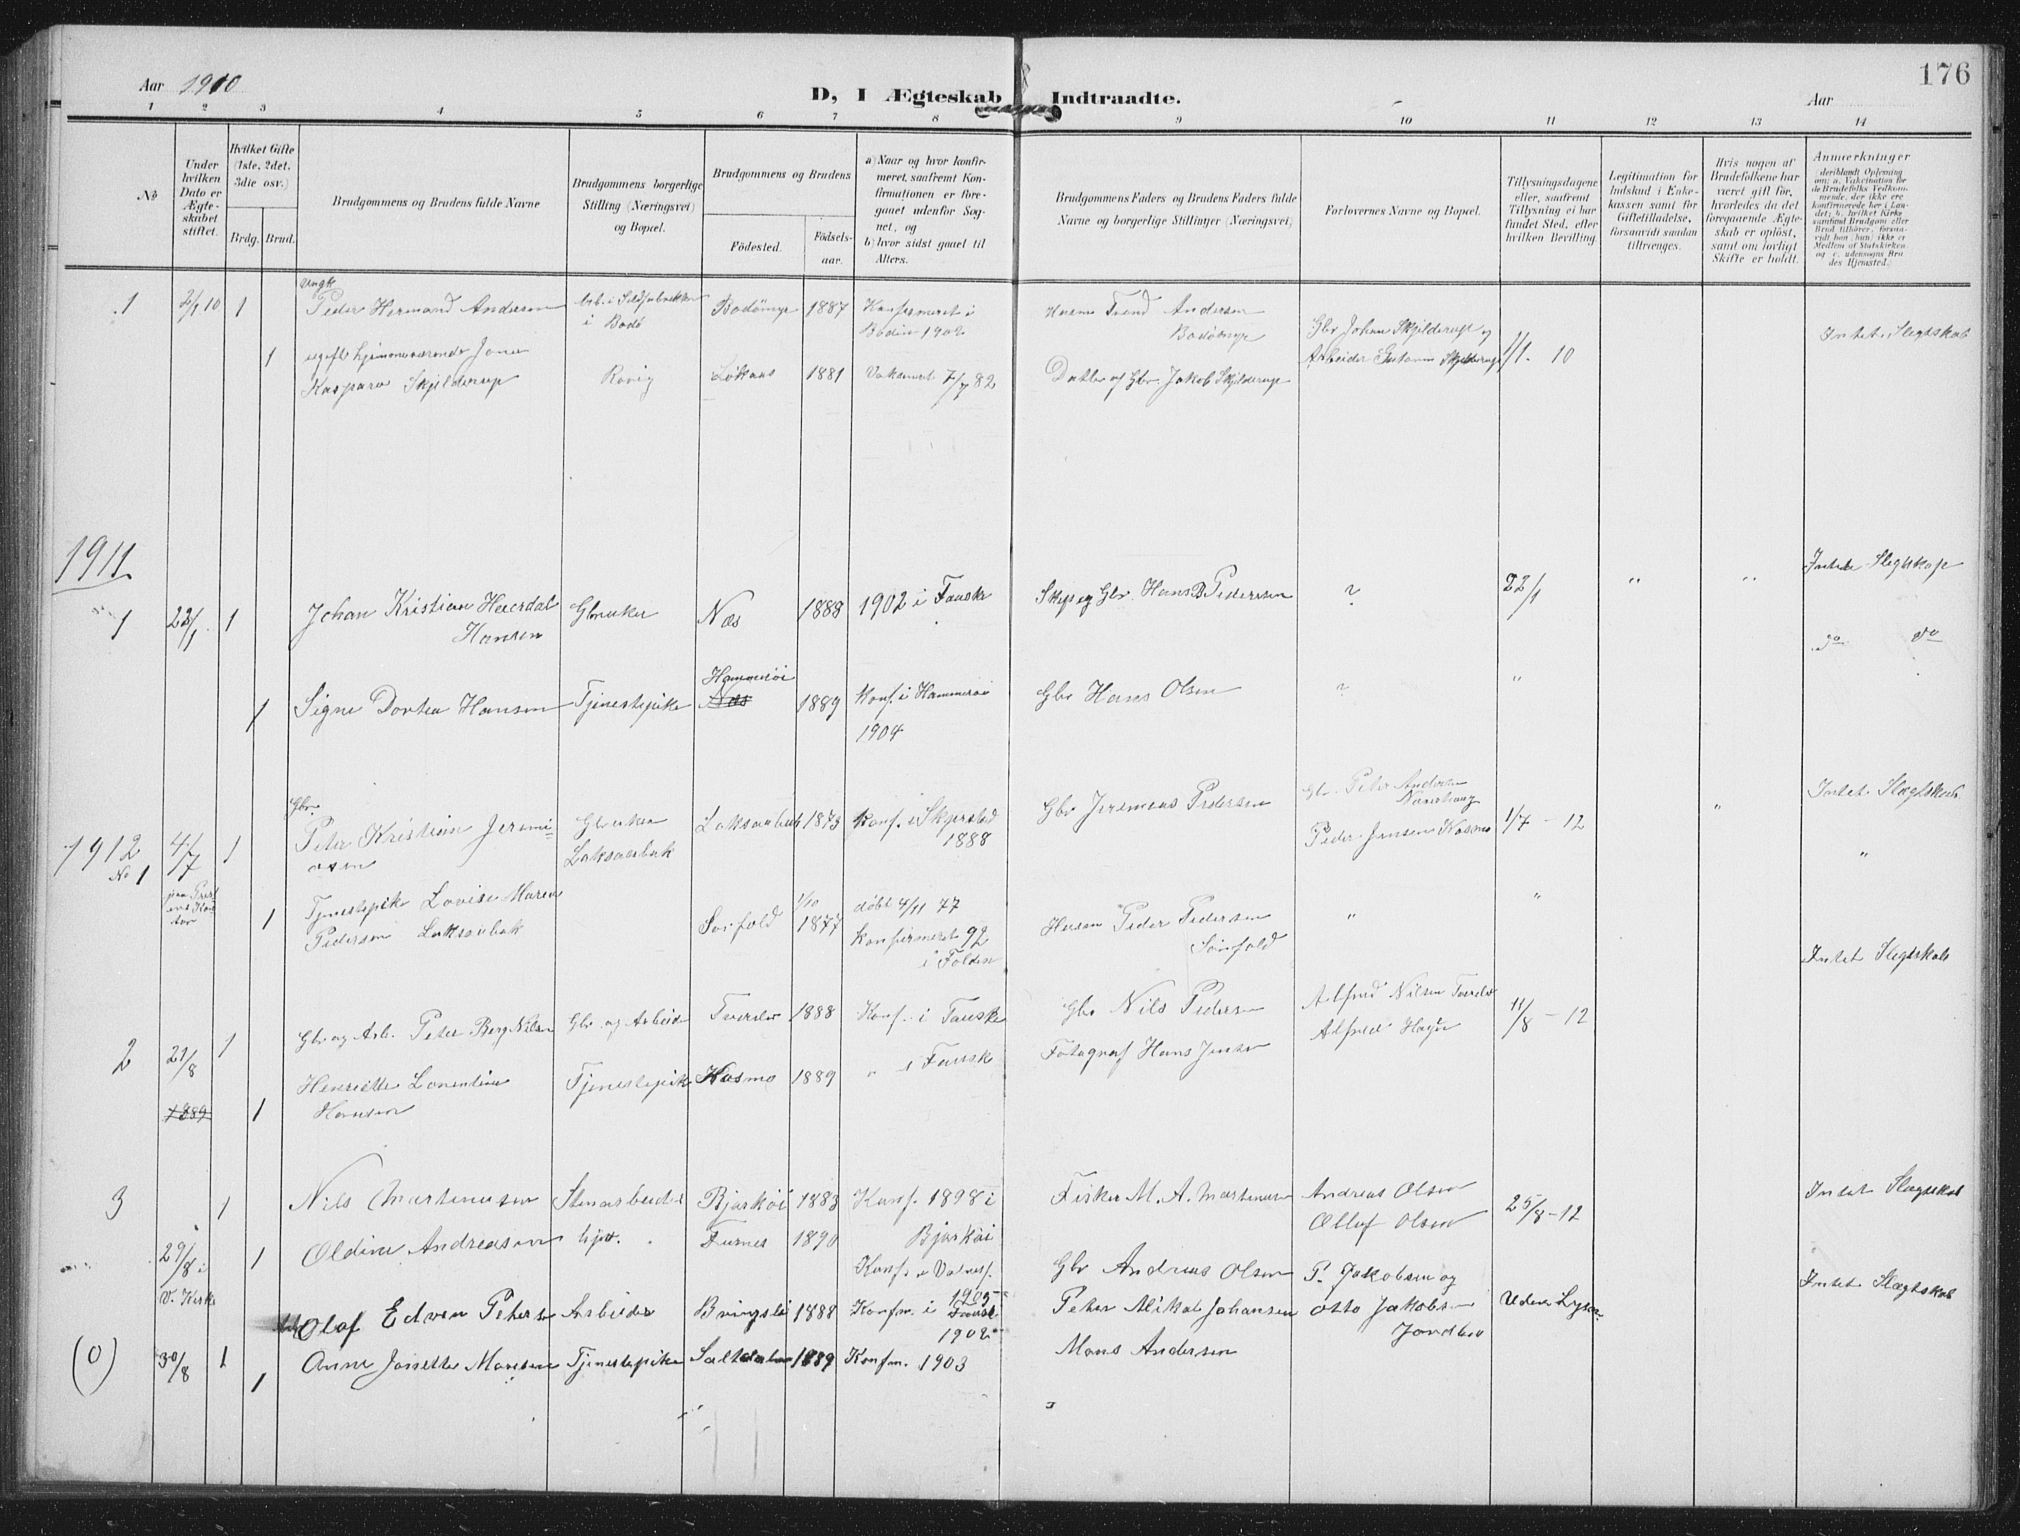 Aar 1910
D, I Ægteskab Indtraadte.
Aar
176
1 2 3 4 5 6 7 8 9 10 11 12 13 14
No
Under hvilken Dato er Ægteskabet stiftet.
Hvilket Gifte (1ste, 2det, 3die osv.)
Brdg. Brud.
Brudgommens og Brudens fulde Navne
Brudgommens borgerlige Stilling (Næringsvei) og Bopæl.
Brudgommens og Brudens
Fødested.
Fødselsaar.
a) Naar og hvor konfirmeret, saafremt Konfirmationen er foregaaet udenfor Sognet, og
b) hvor sidst gaaet til Alters.
Brudgommens Faders og Brudens Faders fulde Navne og borgerlige Stillinger (Næringsvei)
Forlovernes Navne og Bopæl.
Tillysningsdagene eller, saafremt Tillysning ei har fundet Sted, efter hvilken Bevilling
Legitimation for Indskud i Enkekassen samt for Giftetilladelse, forsaavidt saadan tiltrænges.
Hvis nogen af Brudefolkene har været gift før, hvorledes da det foregaaende Ægteskab er opløst, samt om lovligt Skifte er holdt.
Anmærkninger
deriblandt Oplysning om: a. Vakcination for de Brudefolks Vedkommende, der ikke ere konfirmerede her i Landet; b. hvilket Kirkesamfund Brudgom eller Brud tilhører, forsaavidt han (hun) ikke er Medlem af Statskirken, og c. udensogns Brudes Hjemsted.
1 2/1 10 1
Ungk
Peder Hermand Andersen
i Bodø
Bodømyr 1887
Konfirmeret i
Bodin 1902
Andersen
Bodømyr
Gbr Johan Skjilderup og
Arbeider Skjilderup
1/1. 10
Intet Slegtskab
1
ugift hjemmeværende
Kaspara Skjilderup
Røvig
1881
7/7 82
Datter af Gbr. Jakob Skjilderup
1911
1
22/1
1
Johan Kristian
Hansen
Gbruker
Næs
1888
1902 i Fauske
Gbr. Hans Pedersen
?
22/1
"
"
Intet Slegtskap
do do
1
Signe Dortea Hansen
Tjenestepike
Hammerøi
Næs
1889
Konf. i Hammerøi
1904
Gbr Hans Olsen
?
"
1912
No 1
4/7
1
Gbr
Peter Kristian Jeremiasen
Gbruker
Laksaabak
1873
Konf. i Skjerstad
1888
Gbr Jeremias Pedersen
Gbr. Peter Andersen
Peder Jensen Kosmo
1/7 - 12
"
Intet Slægtskab
"
1
Tjenestepike Lovise Maren
Pedersen Laksaabak
Sørfold
1/10
1877
døbt 4/11 77
Konfirmeret 92
i Folden
Husm Peder Pedersen
Sørfold
"
"
Intet Slegtskab
2
21/8
1
Gbr og Arb. Peter Berg Nilsen
Gbr og Arbeider
Tverelv
1888
Konf. i Fauske
Gbr Nils Pedersen
Alfred Nilsen Tverelv
Alfred
11/8 - 12
1889
1
Henriette Lorentine
Hansen
Tjenestepike
Kosmo
1889
" i Fauske
Fotograf Hans Jensen
3
29/8 i
V. Kirke
1
Nils Martinussen
Stenarbeider
Bjarkøi
1883
Konf. 1898 i
Bjarkøi
Fisker M. A. Martinussen
Andreas Olsen
Oluf Olsen
25/8 - 12
Intet Slægtskab
1
Oldine Andreasen
Furnes
1890
Konf. i Valnesf.
1905
Gbr Andreas Olsen
(0)
30/8
1
Olaf Edvin Petersen
Arbeider
Bringsli
1888
Konfm. i Fauske
1902
Peter Mikal Johansen
P. Jakobsen og
Otto Jakobsen
Jordbro
Uden
Intet Slægtskab
1
Anne Jonette Monsen
Tjenestepike
Saltdalen
1889
Konfm. 1903
Mons Andersen